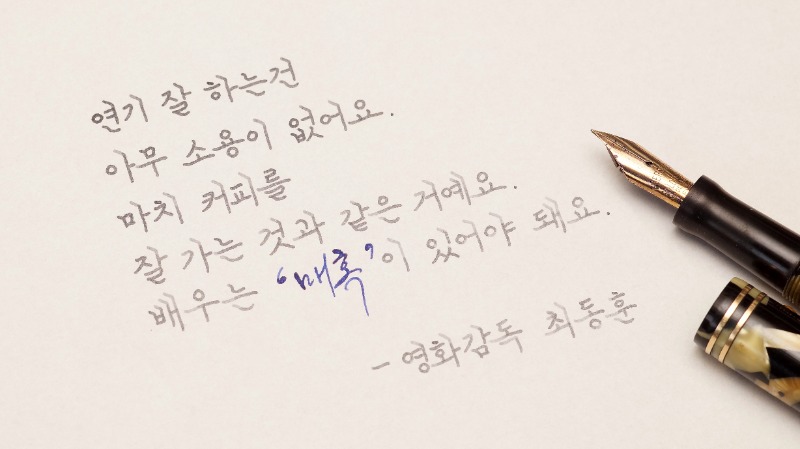 연기 잘 하는건
아무 소용이 없어요.
마치 커피를
잘 가는 것과 같은 거예요.
배우는 '매혹'이 있어야 돼요.
- 영화감독 최동훈